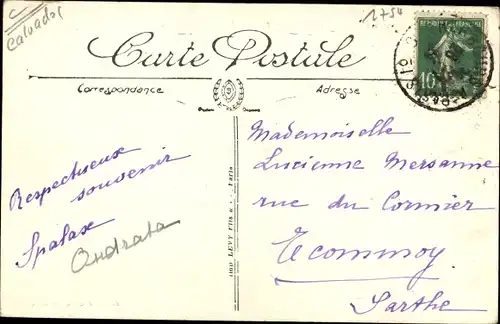 Calvados
1754
Carte Postale
Correspondance
Adresse
REPUBLIQUE FRANÇAISE
10
Mademoiselle
Lucienne Mersanne
rue du Cormier
Ecommoy
Sarthe
Respectueux
souvenir
Spalax
Ondrata
LEVY Fils &